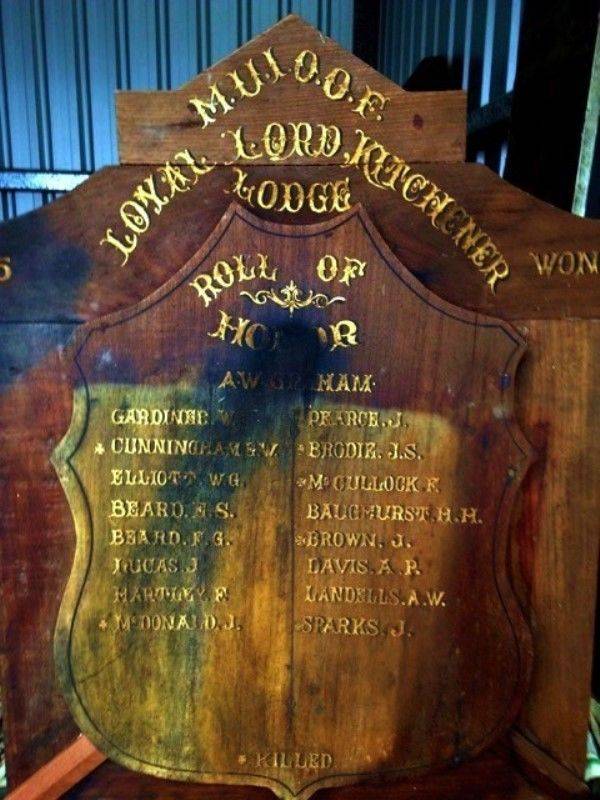 M.U.I.O.O.F.
LOYAL LORD KITCHENER
LODGE
5 WON
ROLL OF
HONOR
A.W. GRAHAM
GARDINER. W.
* CUNNINGHAM
ELLIOTT. W.G.
BEARD. F.S.
BEARD. F.G.
LUCAS. J
HARTLEY. F
* McDONALD. J.
PEARCE. J.
* BRODIE. J.S.
* McCULLOCK F.
BAUGHURST. H.H.
* BROWN. J.
DAVIS. A.P.
LANDELLS. A.W.
* SPARKS. J.
* KILLED